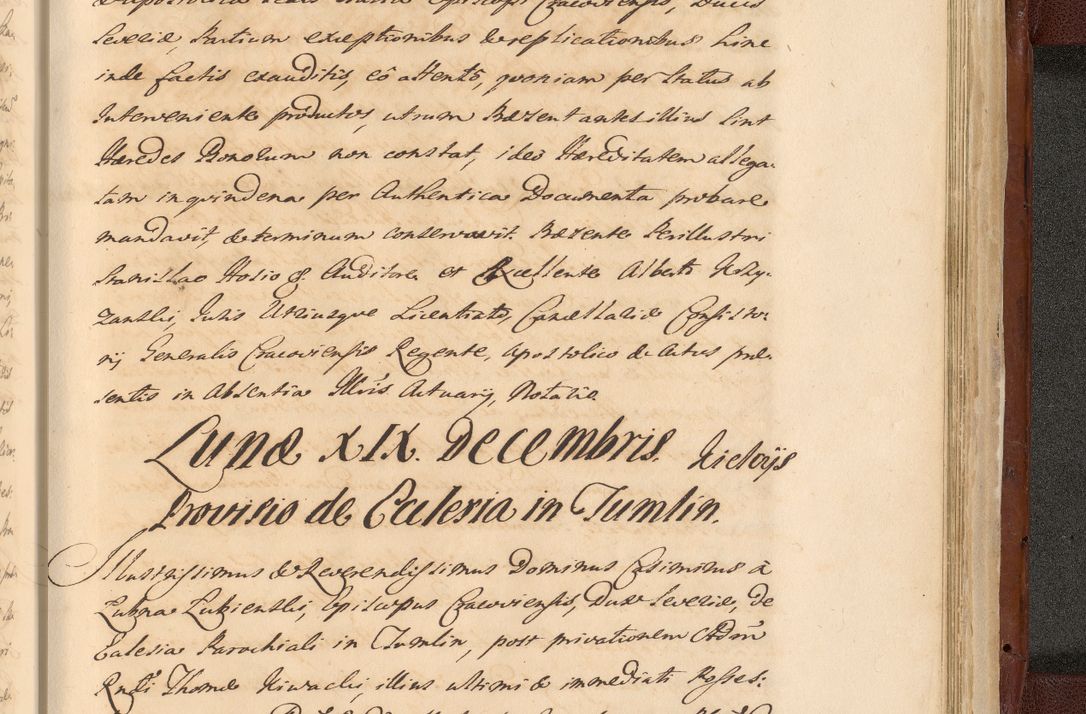 Severiæ, Partium exceptionibus & replicationibus hinc
inde factis exauditis, eô attentô, quoniam per Status ab
Interveniente productos, utrum Præsentantes illius sint
Hæredes Bonorum non constat, ideo Hæreditatem allega-
tam in quindena per Authentica Documenta probare
mandavit, & terminum conservavit. Præsente Perillustri
Stanislao Hosio G. Auditore et Excellente Alberto
zanski, Juris Utriusque Licentiato, Cancellariæ Consisto-
rij Generalis Cracoviensis Regente, Apostolico & Actus præ-
sentis in Absentia Illris Actuarij, Notario.
Lunæ XIX. Decembris. Kielcijs
Provisio de Ecclesia in Tumlin.
Illustrissimus & Reverendissimus Dominus Casimirus à
Lubna Lubienski, Episcopus Cracoviensis, Dux Severiæ, de
Eclesia Parochiali in Tumlin, post privationem Admˢ
Rndi Thomæ illius ultimi & immediati Posses: